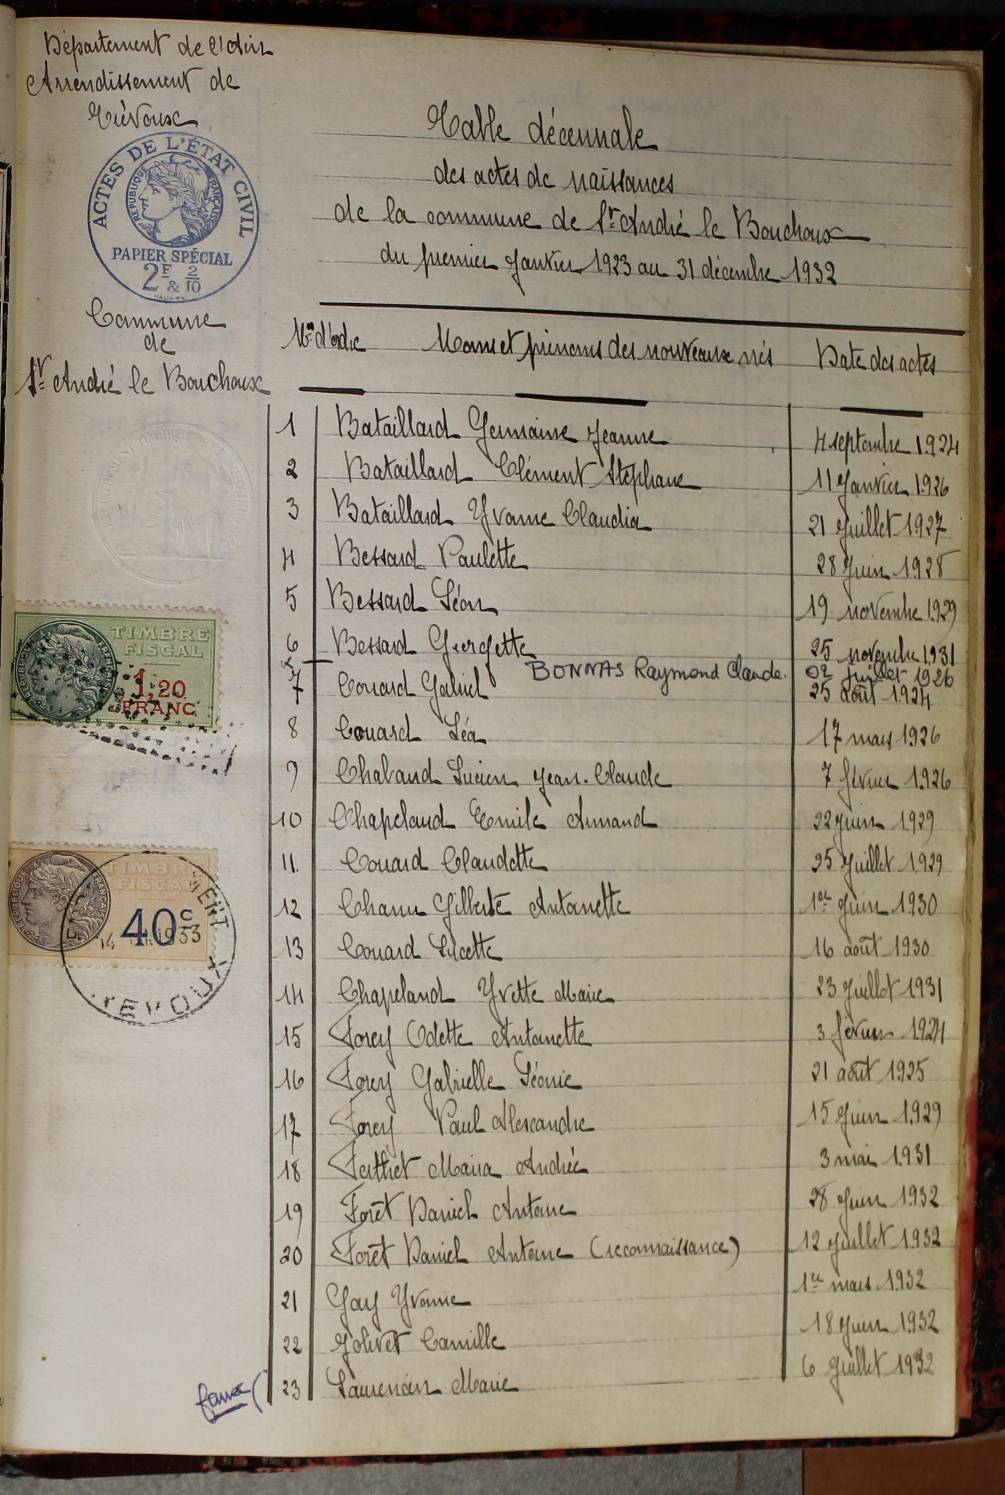 Département de l'Ain
Arrondissement de
Trévoux
ACTES DE L'ÉTAT CIVIL
RÉPUBLIQUE FRANÇAISE
PAPIER SPÉCIAL
2F & 2/10
Commune
de
St André le Bouchoux
Table décennale
des actes de naissances
de la commune de St André le Bouchoux
du premier Janvier 1923 au 31 décembre 1932
Nos d'ordre Noms et prénoms des nouveaux nés Date des actes
1 Bataillard Germaine Jeanne 4 septembre 1924
2 Bataillard Clément Stéphane 11 Janvier 1926
3 Bataillard Yvonne Claudia 21 Juillet 1927
4 Bessard Paulette 28 Juin 1928
5 Bessard Léon 19 novembre 1929
6 Bessard Georgette 25 novembre 1931
BONNAS Raymond Claude. 02 juillet 1926
7 Couard Gabriel 25 août 1924
8 Couard Léa 17 mars 1926
9 Chabaud Lucien Jean-Claude 7 février 1926
10 Chapeland Emile Armand 22 Juin 1929
11 Couard Claudette 25 Juillet 1929
12 Chanu Gilberte Antoinette 1er Juin 1930
13 Couard Lucette 16 août 1930
14 Chapeland Yvette Marie 23 Juillet 1931
15 Forey Odette Antoinette 3 février 1924
16 Forey Gabrielle Léonie 21 août 1925
17 Forey Paul Alexandre 15 Juin 1929
18 Ferthiet Maria Andrée 3 mai 1931
19 Forêt Daniel Antoine 28 Juin 1932
20 Forêt Daniel Antoine (reconnaissance) 12 Juillet 1932
21 Gay Yvonne 1er mars 1932
22 Jolivet Camille 18 Juin 1932
23 Laurencin Marie 6 Juillet 1932
TIMBRE
FISCAL
1.20
FRANC
TIMBRE
FISCAL
40c
1933